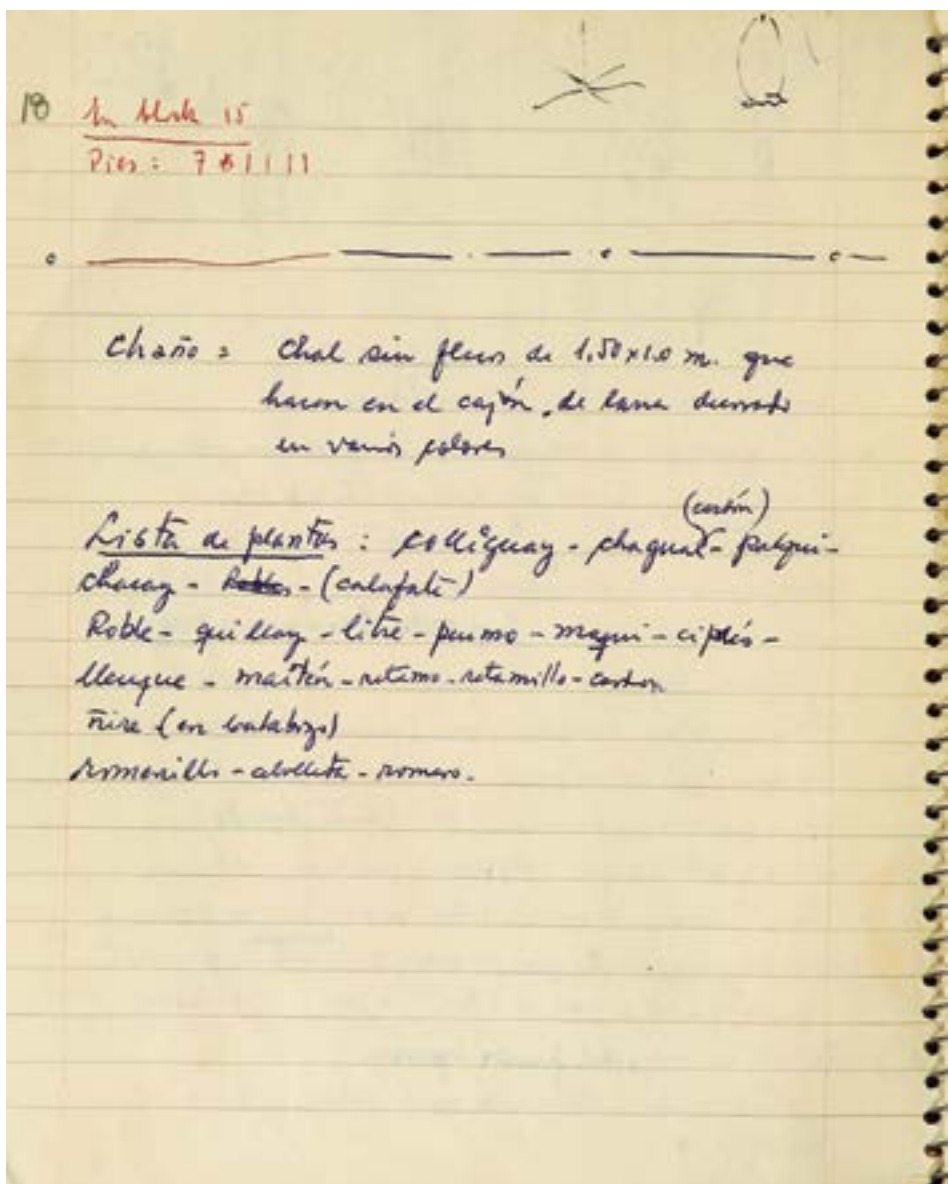 18
block 15
Pies: 7
Chaño = Chal sin flecos de 1,50x1.0 m. que
hacen en el cajón, de lana
en varios colores
(cartón)
Lista de plantas: colliguay - chagual - palqui -
chacay - Roble - (calafate)
Roble - quillay - litre - peumo - maqui - ciprés -
lleuque - maitén - retamo - retamillo - carbon
ñire (en
romerillo - - romero.